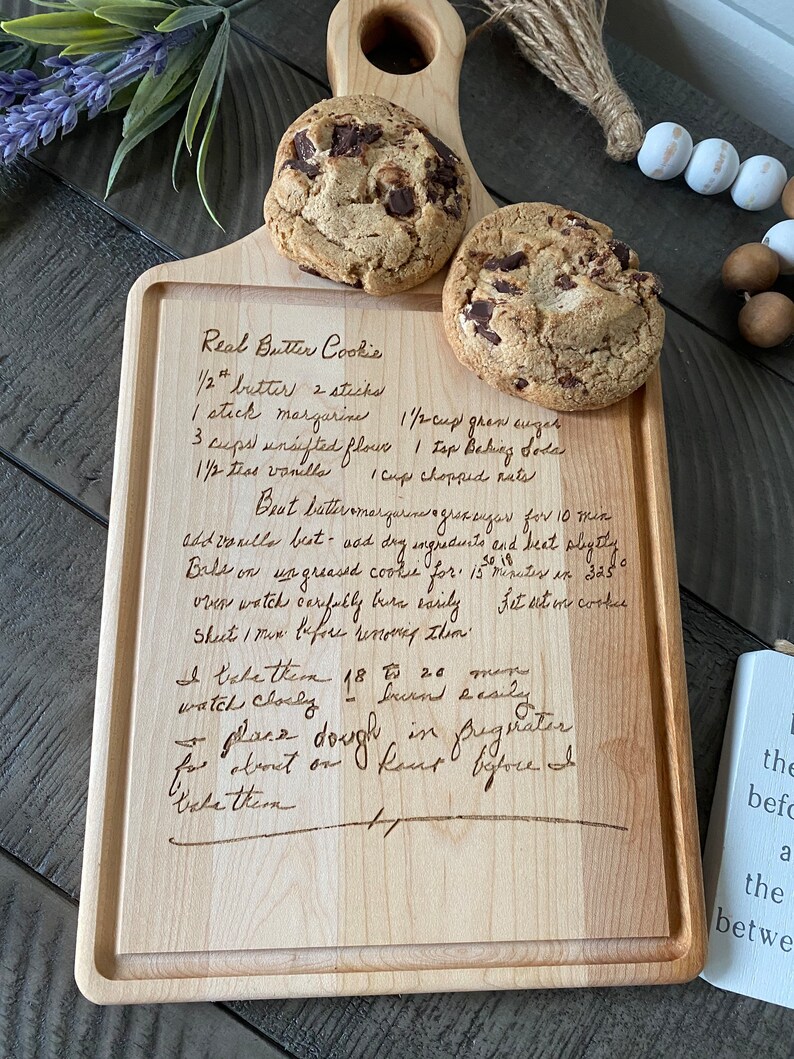 Real Butter Cookie
1/2 # butter 2 sticks
1 stick margarine 1 1/2 cup gran sugar
3 cups unsifted flour 1 tsp Baking Soda
1 1/2 teas vanilla 1 cup chopped nuts
Beat butter + margarine + gran sugar for 10 min
add vanilla beat - add dry ingredients and beat slightly
Bake on ungreased cookie for 15 to 18 minutes in 325°
oven watch carefully burn easily Let set on cookie
sheet 1 min before removing them.
I bake them 18 to 20 min
watch closely - burns easily
I place dough in frigerator
for about an hour before I
bake them
the
befo
a
the
betwe